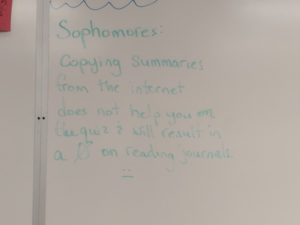 Sophomores:
Copying Summaries
from the internet
does not help you on
the quiz & will result in
a Ø on reading journals